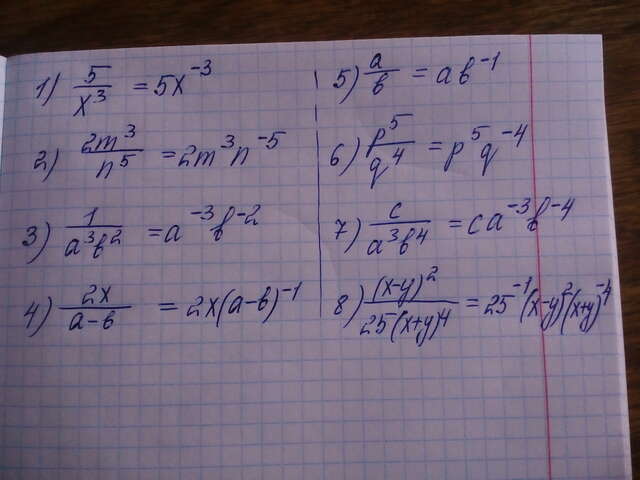 1) 5/x³ = 5x⁻³
2) 2m³/n⁵ = 2m³n⁻⁵
3) 1/a³b² = a⁻³b⁻²
4) 2x/a-b = 2x(a-b)⁻¹
5) a/b = ab⁻¹
6) p⁵/q⁴ = p⁵q⁻⁴
7) c/a³b⁴ = ca⁻³b⁻⁴
8) (x-y)²/25(x+y)⁴ = 25⁻¹(x-y)²(x+y)⁻⁴